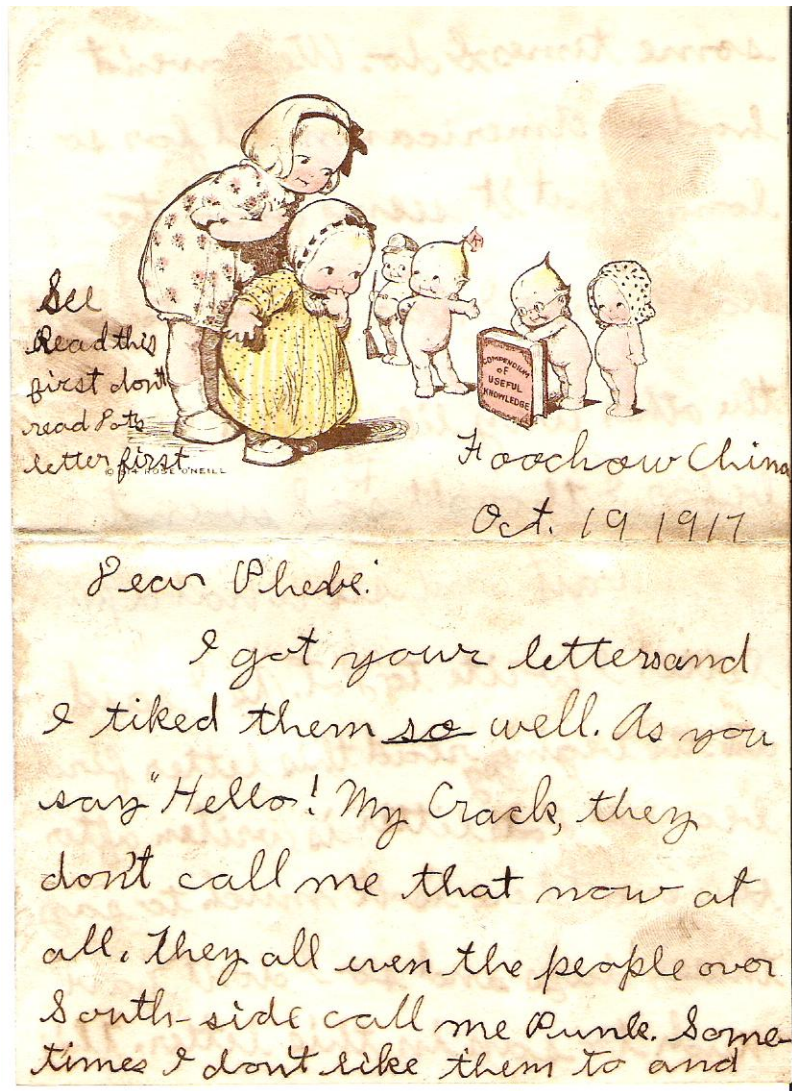 See
Read this
first don't
read
letter first
ROSE O'NEILL
COMPENDIUM
OF
USEFUL
KNOWLEDGE
Foochow China
Oct. 19 1917
Dear Phebe:
I got your letters and
I liked them so well. As you
say "Hello! My Crack, they
don't call me that now at
all. They all even the people over
South-side call me Punk. Some-
times I don't like them to and